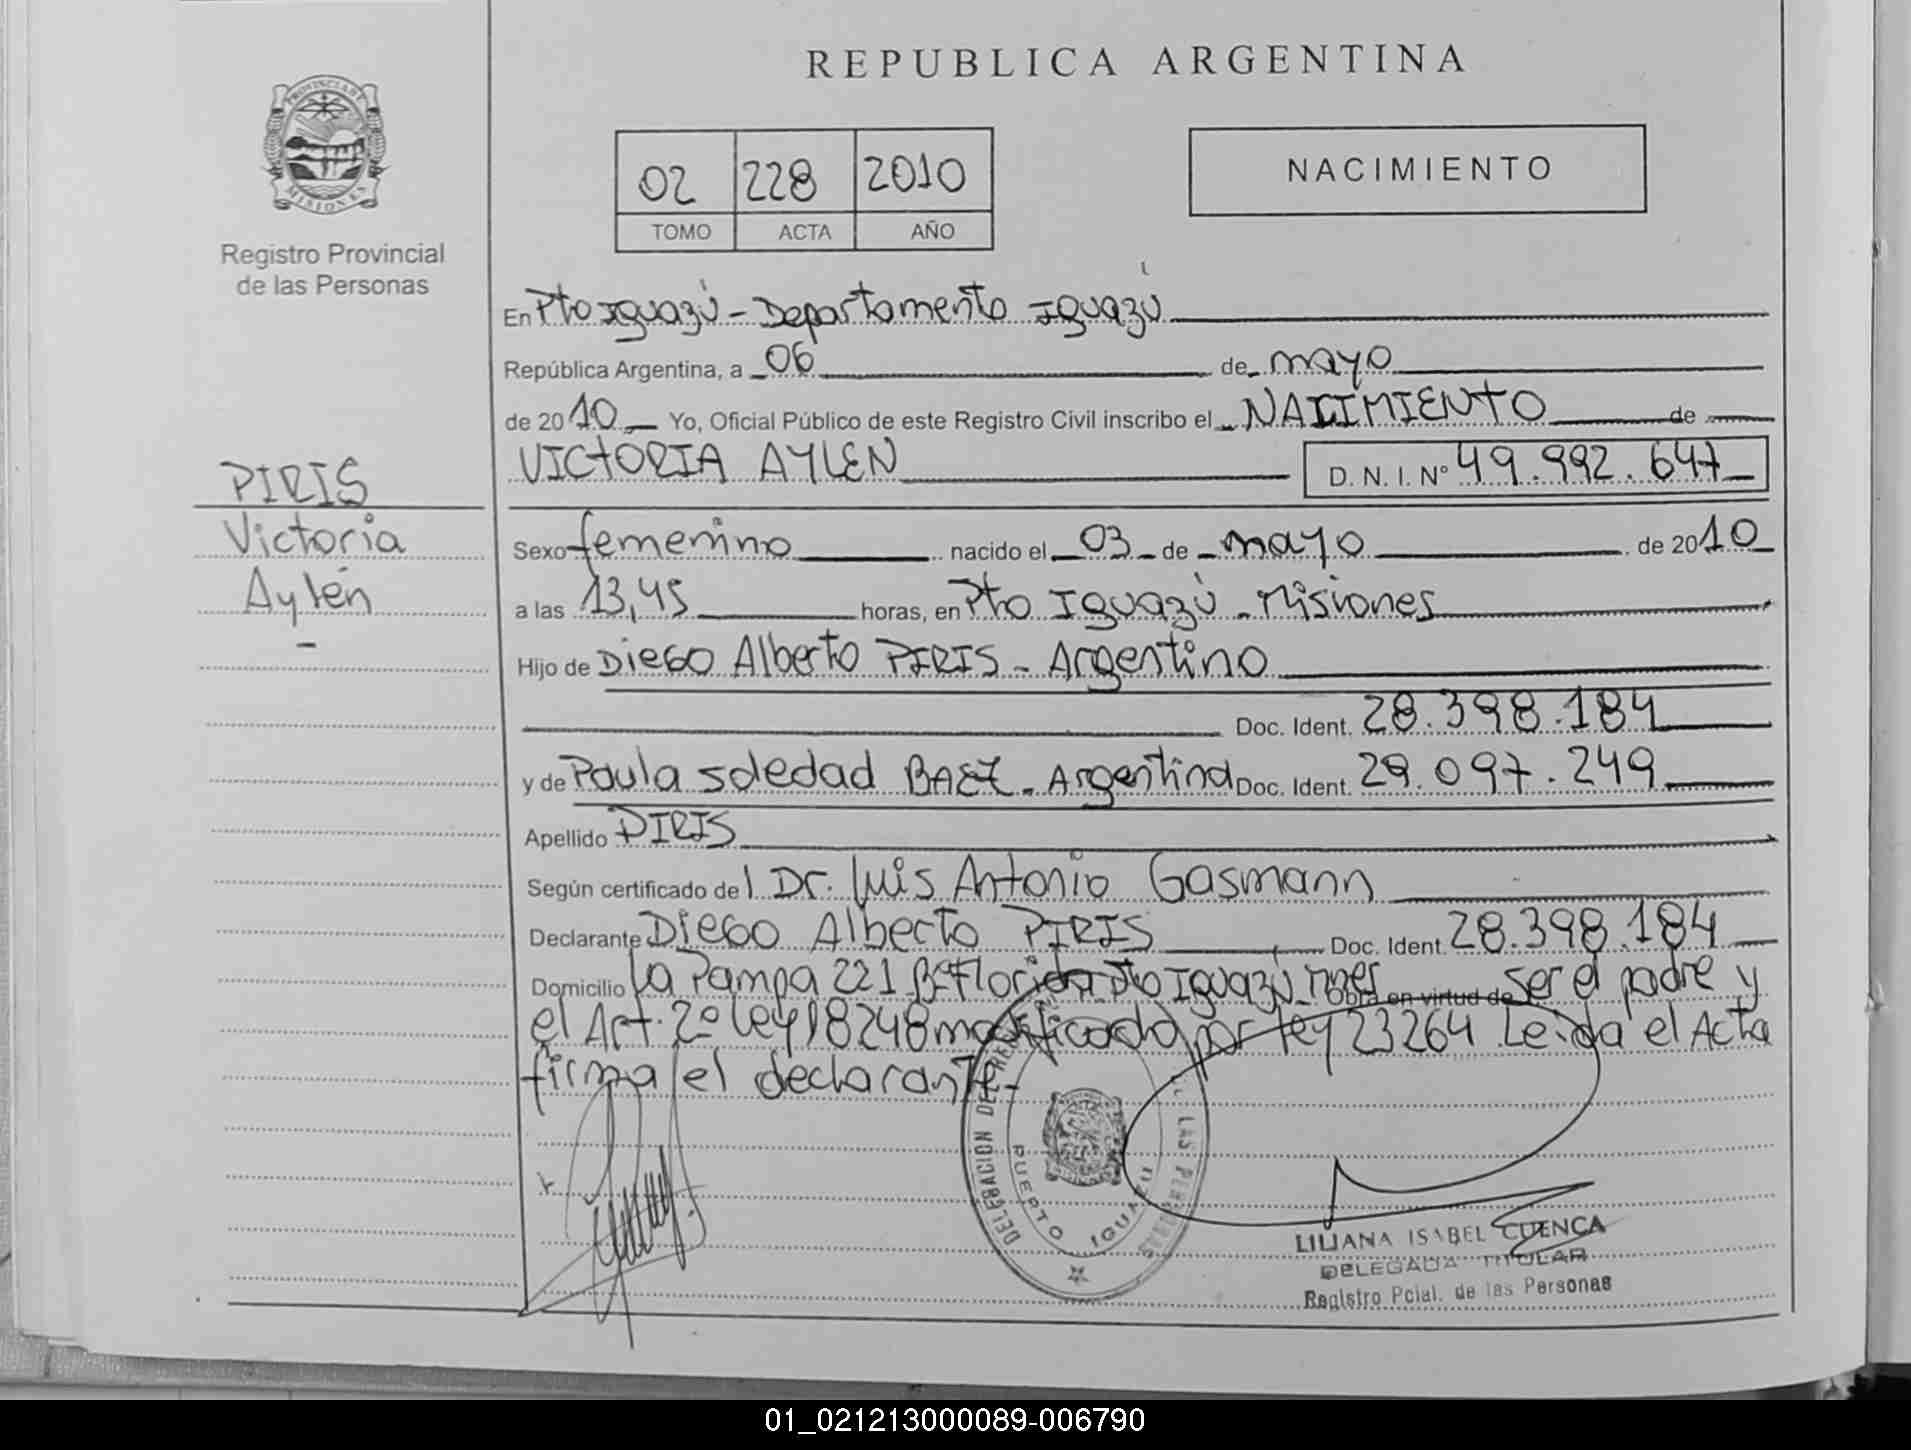 REPUBLICA ARGENTINA
PROVINCIA DE
MISIONES
Registro Provincial
de las Personas
02 228 2010
TOMO ACTA AÑO
NACIMIENTO
En Pto Iguazú - Departamento Iguazú
República Argentina, a 06 de mayo
de 2010 Yo, Oficial Público de este Registro Civil inscribo el NACIMIENTO de
VICTORIA AYLEN D. N. I. N° 49.992.647
PIRIS
Victoria
Aylén
-
Sexo femenino nacido el 03 de mayo de 2010
a las 13,45 horas, en Pto Iguazú - Misiones
Hijo de Diego Alberto PIRIS - Argentino
Doc. Ident. 28.398.184
y de Paula Soledad BAEZ - Argentina Doc. Ident. 29.097.249
Apellido PIRIS
Según certificado del Dr. Luis Antonio Gasmann
Declarante Diego Alberto PIRIS Doc. Ident. 28.398.184
Domicilio La Pampa 221 Bº Florida Pto Iguazú Mnes Obra en virtud de ser el padre y
el Art. 2º Ley 18248 modificado por Ley 23264 Leida el Acta
firma el declarante -
DELEGACION DEL REGISTRO LAS PERSONAS
PUERTO IGUAZU
LILIANA ISABEL CUENCA
DELEGADA TITULAR
Registro Pcial. de las Personas
01_021213000089-006790